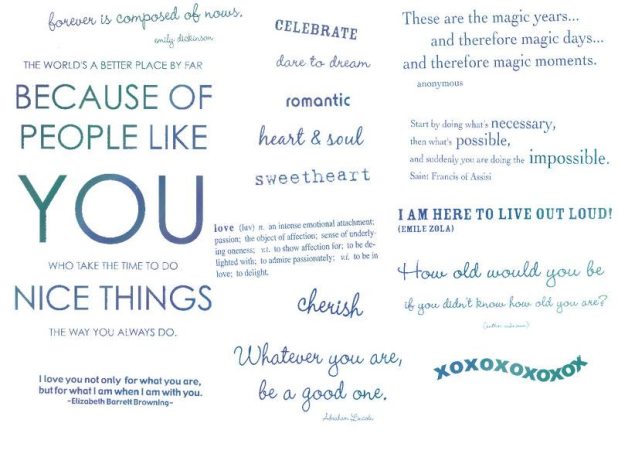 forever is composed of nows.
emily dickinson
THE WORLD'S A BETTER PLACE BY FAR
BECAUSE OF
PEOPLE LIKE
YOU
WHO TAKE THE TIME TO DO
NICE THINGS
THE WAY YOU ALWAYS DO.
I love you not only for what you are,
but for what I am when I am with you.
~Elizabeth Barrett Browning~
CELEBRATE
dare to dream
romantic
heart & soul
sweetheart
love (luv) n. an intense emotional attachment;
passion; the object of affection; sense of underly-
ing oneness; v.t. to show affection for; to be de-
lighted with; to admire passionately; v.i. to be in
love; to delight.
cherish
Whatever you are,
be a good one.
Abraham Lincoln
These are the magic years...
and therefore magic days...
and therefore magic moments.
anonymous
Start by doing what's necessary,
then what's possible,
and suddenly you are doing the impossible.
Saint Francis of Assisi
I AM HERE TO LIVE OUT LOUD!
(EMILE ZOLA)
How old would you be
if you didn't know how old you are?
xoxoxoxoxox